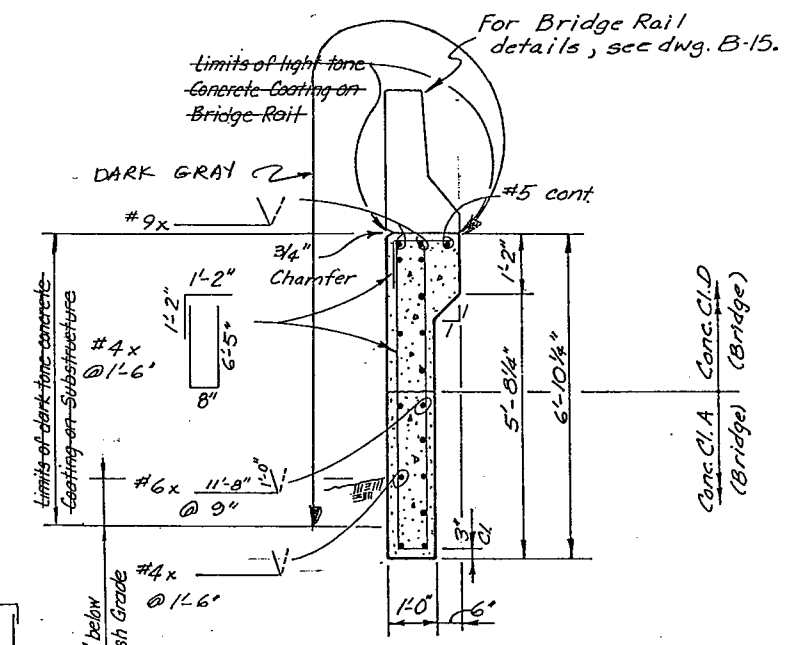 For Bridge Rail
details, see dwg. B-15.
Limits of light tone
Concrete Coating on
Bridge Rail
DARK GRAY
#5 cont.
#9x
3/4"
Chamfer
1'-2"
1'-2"
6'-5"
8"
#4x
@1'-6"
Limits of dark tone concrete
Coating on Substructure
#6x 11'-8" 1'-0"
@ 9"
#4x
@1'-6"
below
sh Grade
1'-2"
5'-8 1/4"
6'-10 1/4"
Conc. Cl. D
(Bridge)
Conc. Cl. A
(Bridge)
3"
Cl.
1'-0"
6"